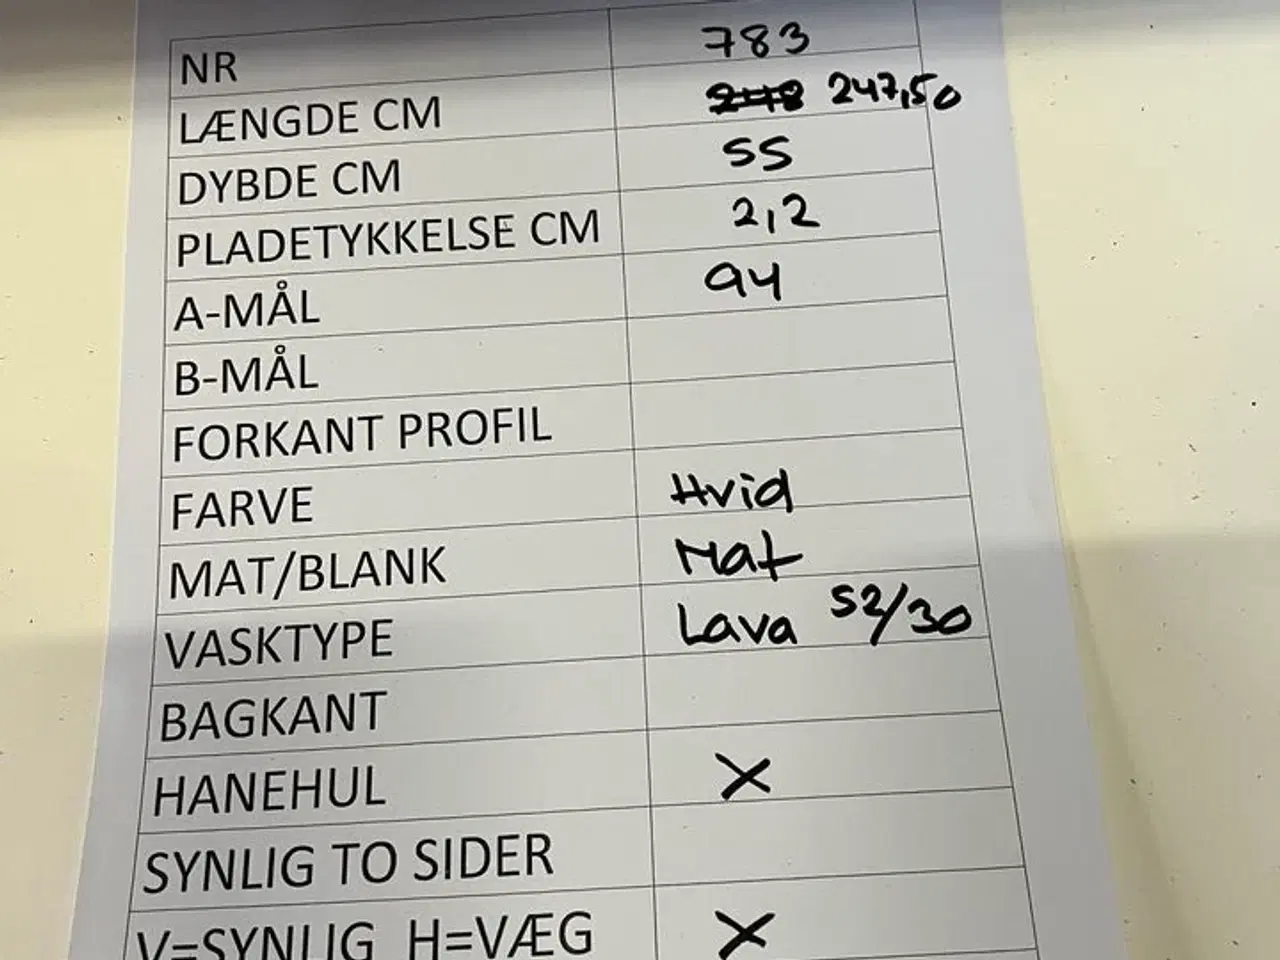 NR 783
LÆNGDE CM 248 247,50
DYBDE CM 55
PLADETYKKELSE CM 2,2
A-MÅL 94
B-MÅL
FORKANT PROFIL
FARVE Hvid
MAT/BLANK Mat
VASKTYPE Lava 52/30
BAGKANT
HANEHUL X
SYNLIG TO SIDER
V=SYNLIG H=VÆG X